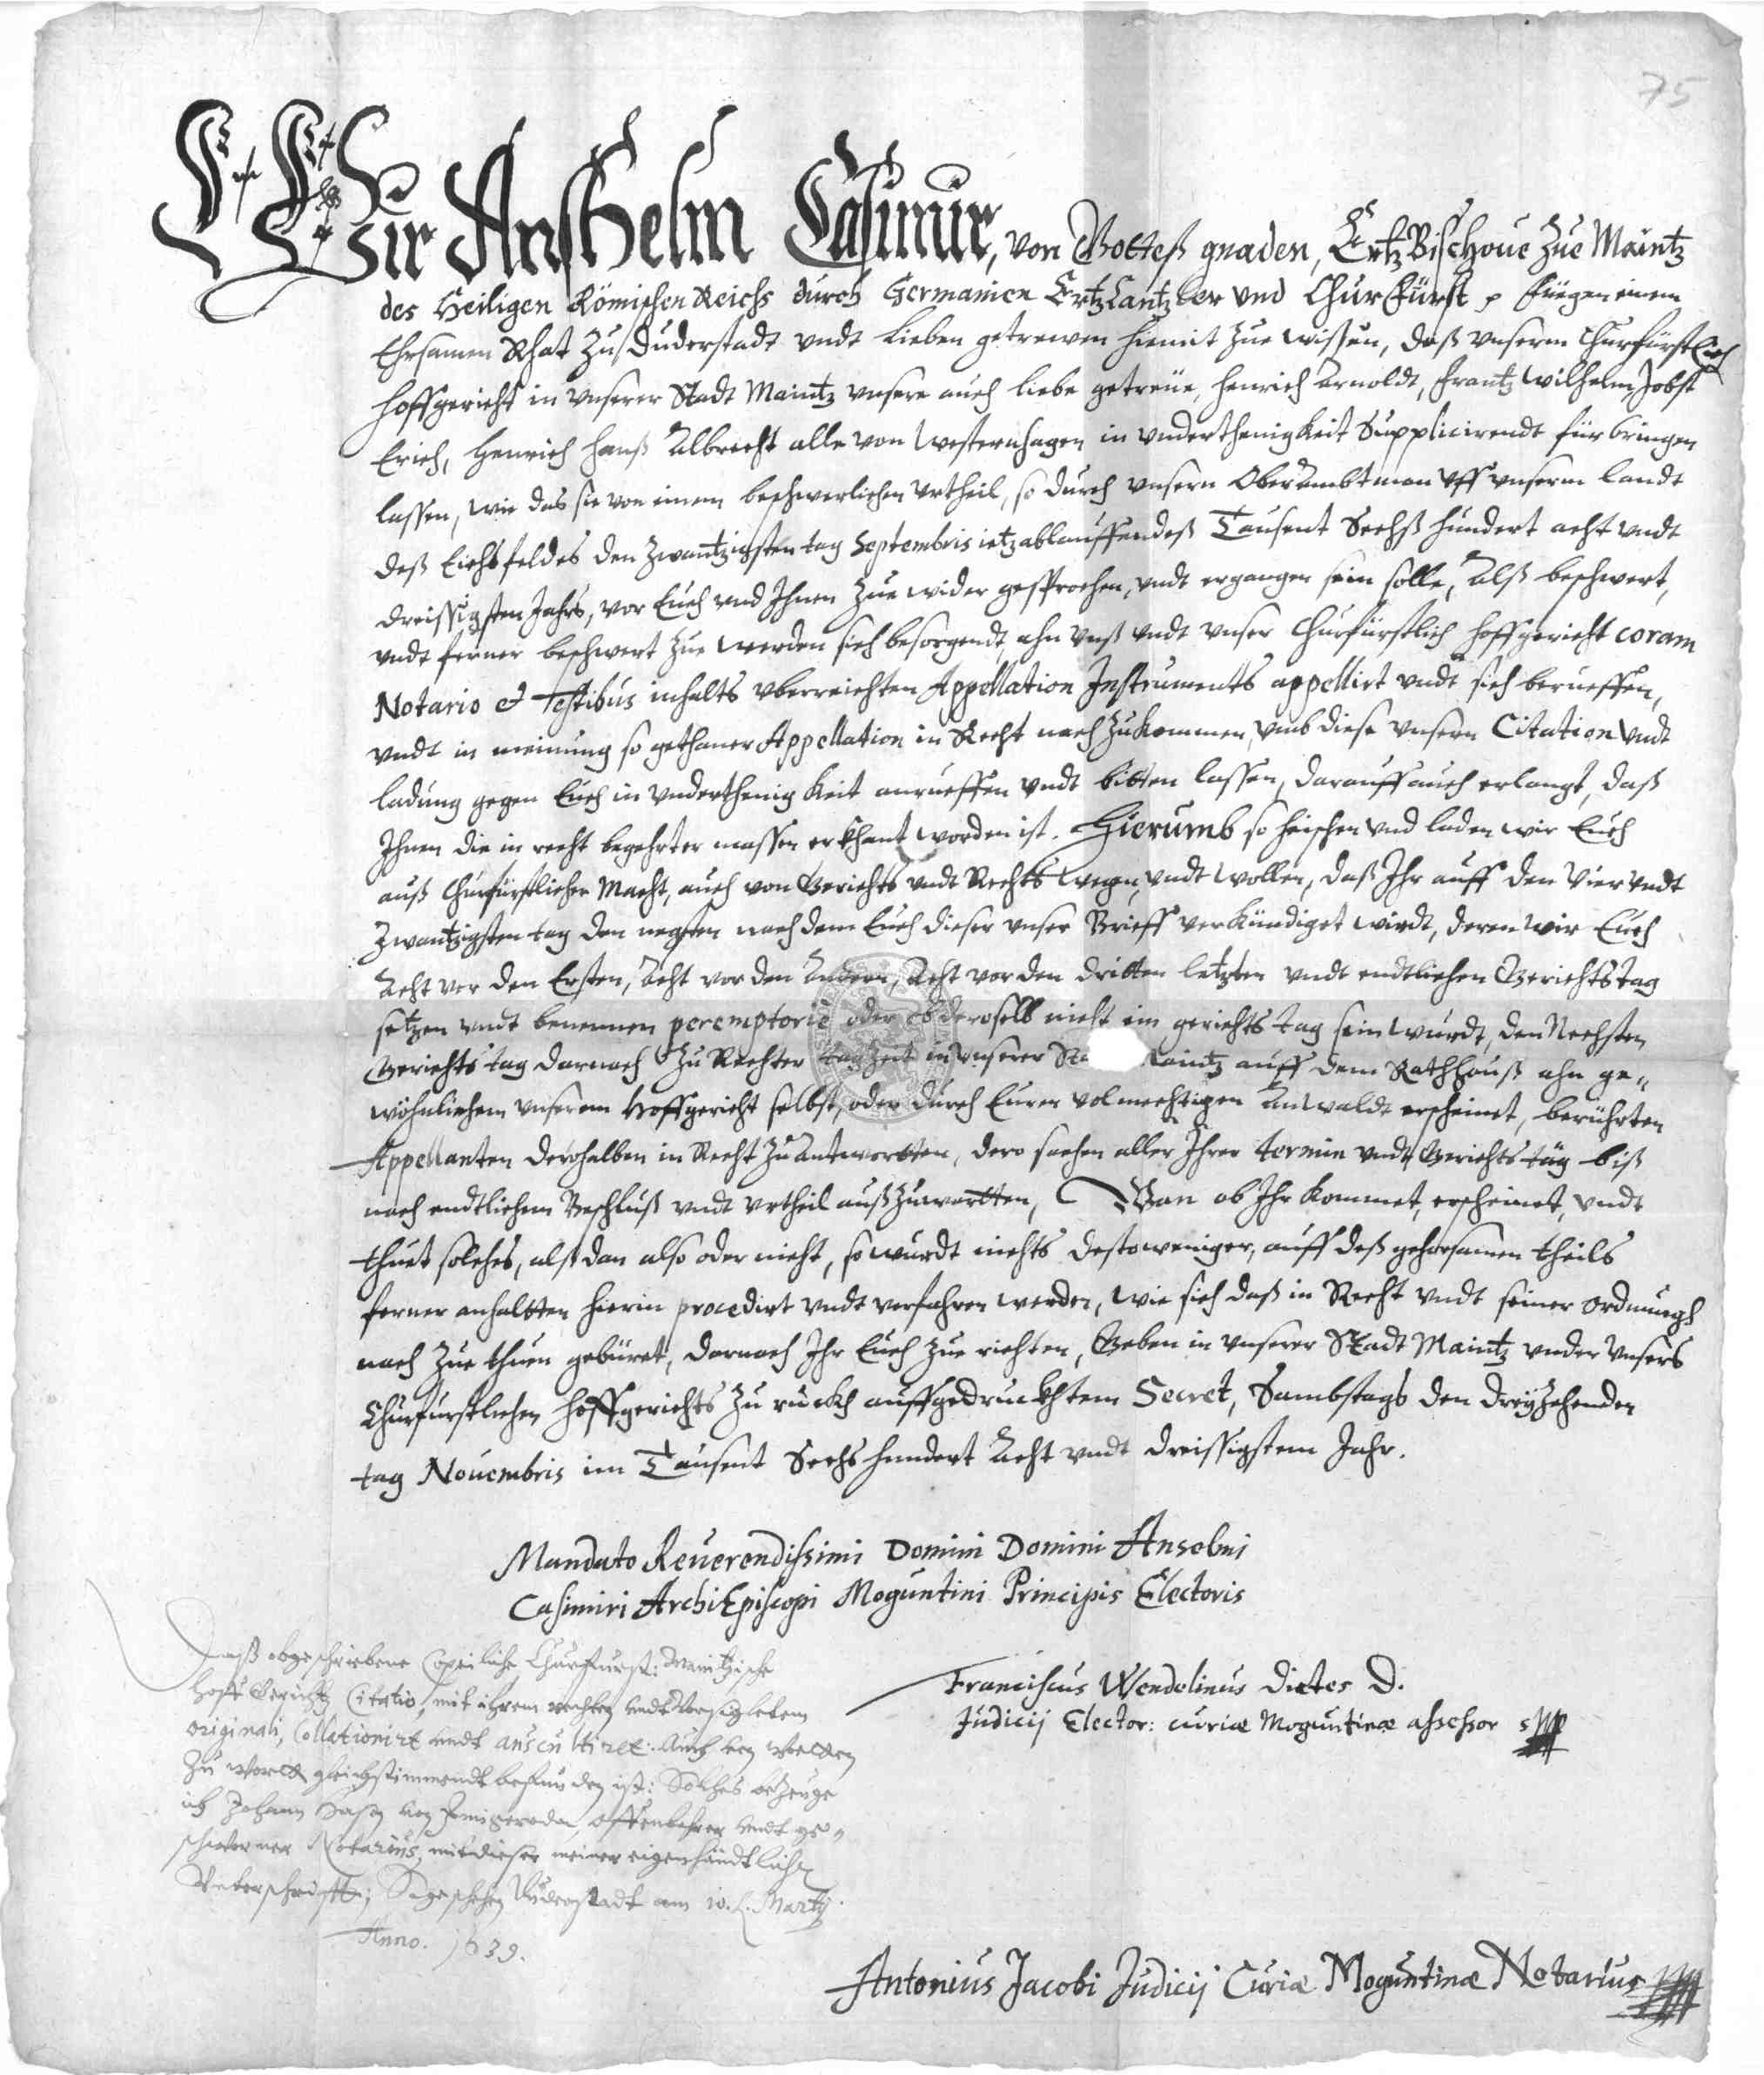 75
Wir Anßhelm Casimir, von Gotteß gnaden, ErtzBischoue Zue Maintz
des Heiligen Römischen Reichs durch Germanien ErtzCantzler vnd ChurFürst p Fuegen einem
Ehrsamen Rhat Zu Duderstadt vndt Lieben getrewen hiemit Zue wissen, daß vnserm Churfürstlich
Hoffgericht in vnserer Stadt Maintz vnsere auch liebe getreüe, Henrich Arnoldt, Frantz Wilhelm, Jobst
Erich, Henrich Hanß Albrecht alle von Westernhagen in vnderthenigkeit Supplicirendt fürbringen
lassen, wie das sie von einem beschwerlichen vrtheil, so durch vnsern OberAmbtman vff vnserm landt
deß Eichsfeldes den Zwantzigsten tag Septembris ietzablauffendeß Tausent Sechß hundert acht vndt
dreissigsten Jahrs, vor Euch vnd Ihnen Zue wider gesprochen, vndt ergangen sein solle, Alß beschwert,
vndt ferner beschwert Zue werden sich besorgendt, ahn vnß vndt vnser Churfürstlich Hoffgericht coram
Notario et Testibus inhalts vberreichten Appellation Instruments appellirt vndt sich berueffen,
vndt in meinung so gethaner Appellation in Recht nach Zukommen, vmb diese vnsern Citation vndt
ladung gegen Euch in vnderthenigkeit anrueffen vndt bitten lassen, darauff auch erlangt, daß
Ihnen die in recht begehrter massen erkhant worden ist. Hierumb so heischen vnd laden wir Euch
auß Churfürstlicher Macht, auch von Gerichts vndt Rechts wegen, vndt wollen, daß Ihr auff den Vier vndt
Zwantzigsten tag den negsten nach dem Euch dieser vnser Brieff verkündiget wirdt, deren wir Euch
Acht vor den Ersten, Acht vor den Andern, Acht vor den dritten letzten vndt endtlichen Gerichtstag
setzen vndt benennen peremptoriè oder ob deroselb nicht ein gerichts tag sein wurdt, den Nechsten
Gerichts tag darnach Zu Rechter tag Zeit in vnserer Maintz auff dem Rathhauß ahn ge„
wöhnlichem vnserem Hoffgericht selbst, oder durch Euren volmechtigen Anwaldt erscheinet, berührten
Appellanten derohalben in Recht Zu Antwortten, dero sachen aller Ihrer termin vndt Gerichts täg biß
nach endtlichem Beschluß vndt vrtheil außzuwartten, Wan ob Ihr kommet, erscheinet, vndt
thuet solches, alß dan also oder nicht, so wurdt nichts destoweniger, auff deß gehorsamen theils
ferner anhaltten hierin procedirt vndt verfahren werden, wie sich daß in Recht vndt seiner ordnungh
nach Zue thuen gebüret, darnach Ihr Euch Zue richten, Geben in vnserer Stadt Maintz vnder vnsers
Churfurstlichen Hoffgerichts Zu rückh auffgedruckhtem Secret, Sambstags den dreyzehenden
tag Nouembris im Tausent Sechs hundert Acht vndt dreissigstem Jahr.
Mandato Reuerendissimi Domini Domini Anselmi
Casimiri ArchiEpiscopi Moguntini Principis Electoris
Franciscus Wendelinus Dietes D.
Judicij Elector: curiæ Moguntinæ assessor
Daß obgeschriebene Copeiliche Churfurst: Maintzische
Hoff Gerichtz Citatio, mit ihrem rechten vndt versigletem
originali, Collationirt vndt auscultiret: Auch von wortten
Zu wortt gleichstimmendt befunden ist: Solches betzeuge
ich Johann von offenbahrer vndt ge„
schworner Notarius, mit dieser meiner eigenhändtlichen
Vnterschrifft; Duderstadt am 10. Martij.
Anno. 1639.
Antonius Jacobi Judicij Curiæ Moguntinæ Notarius